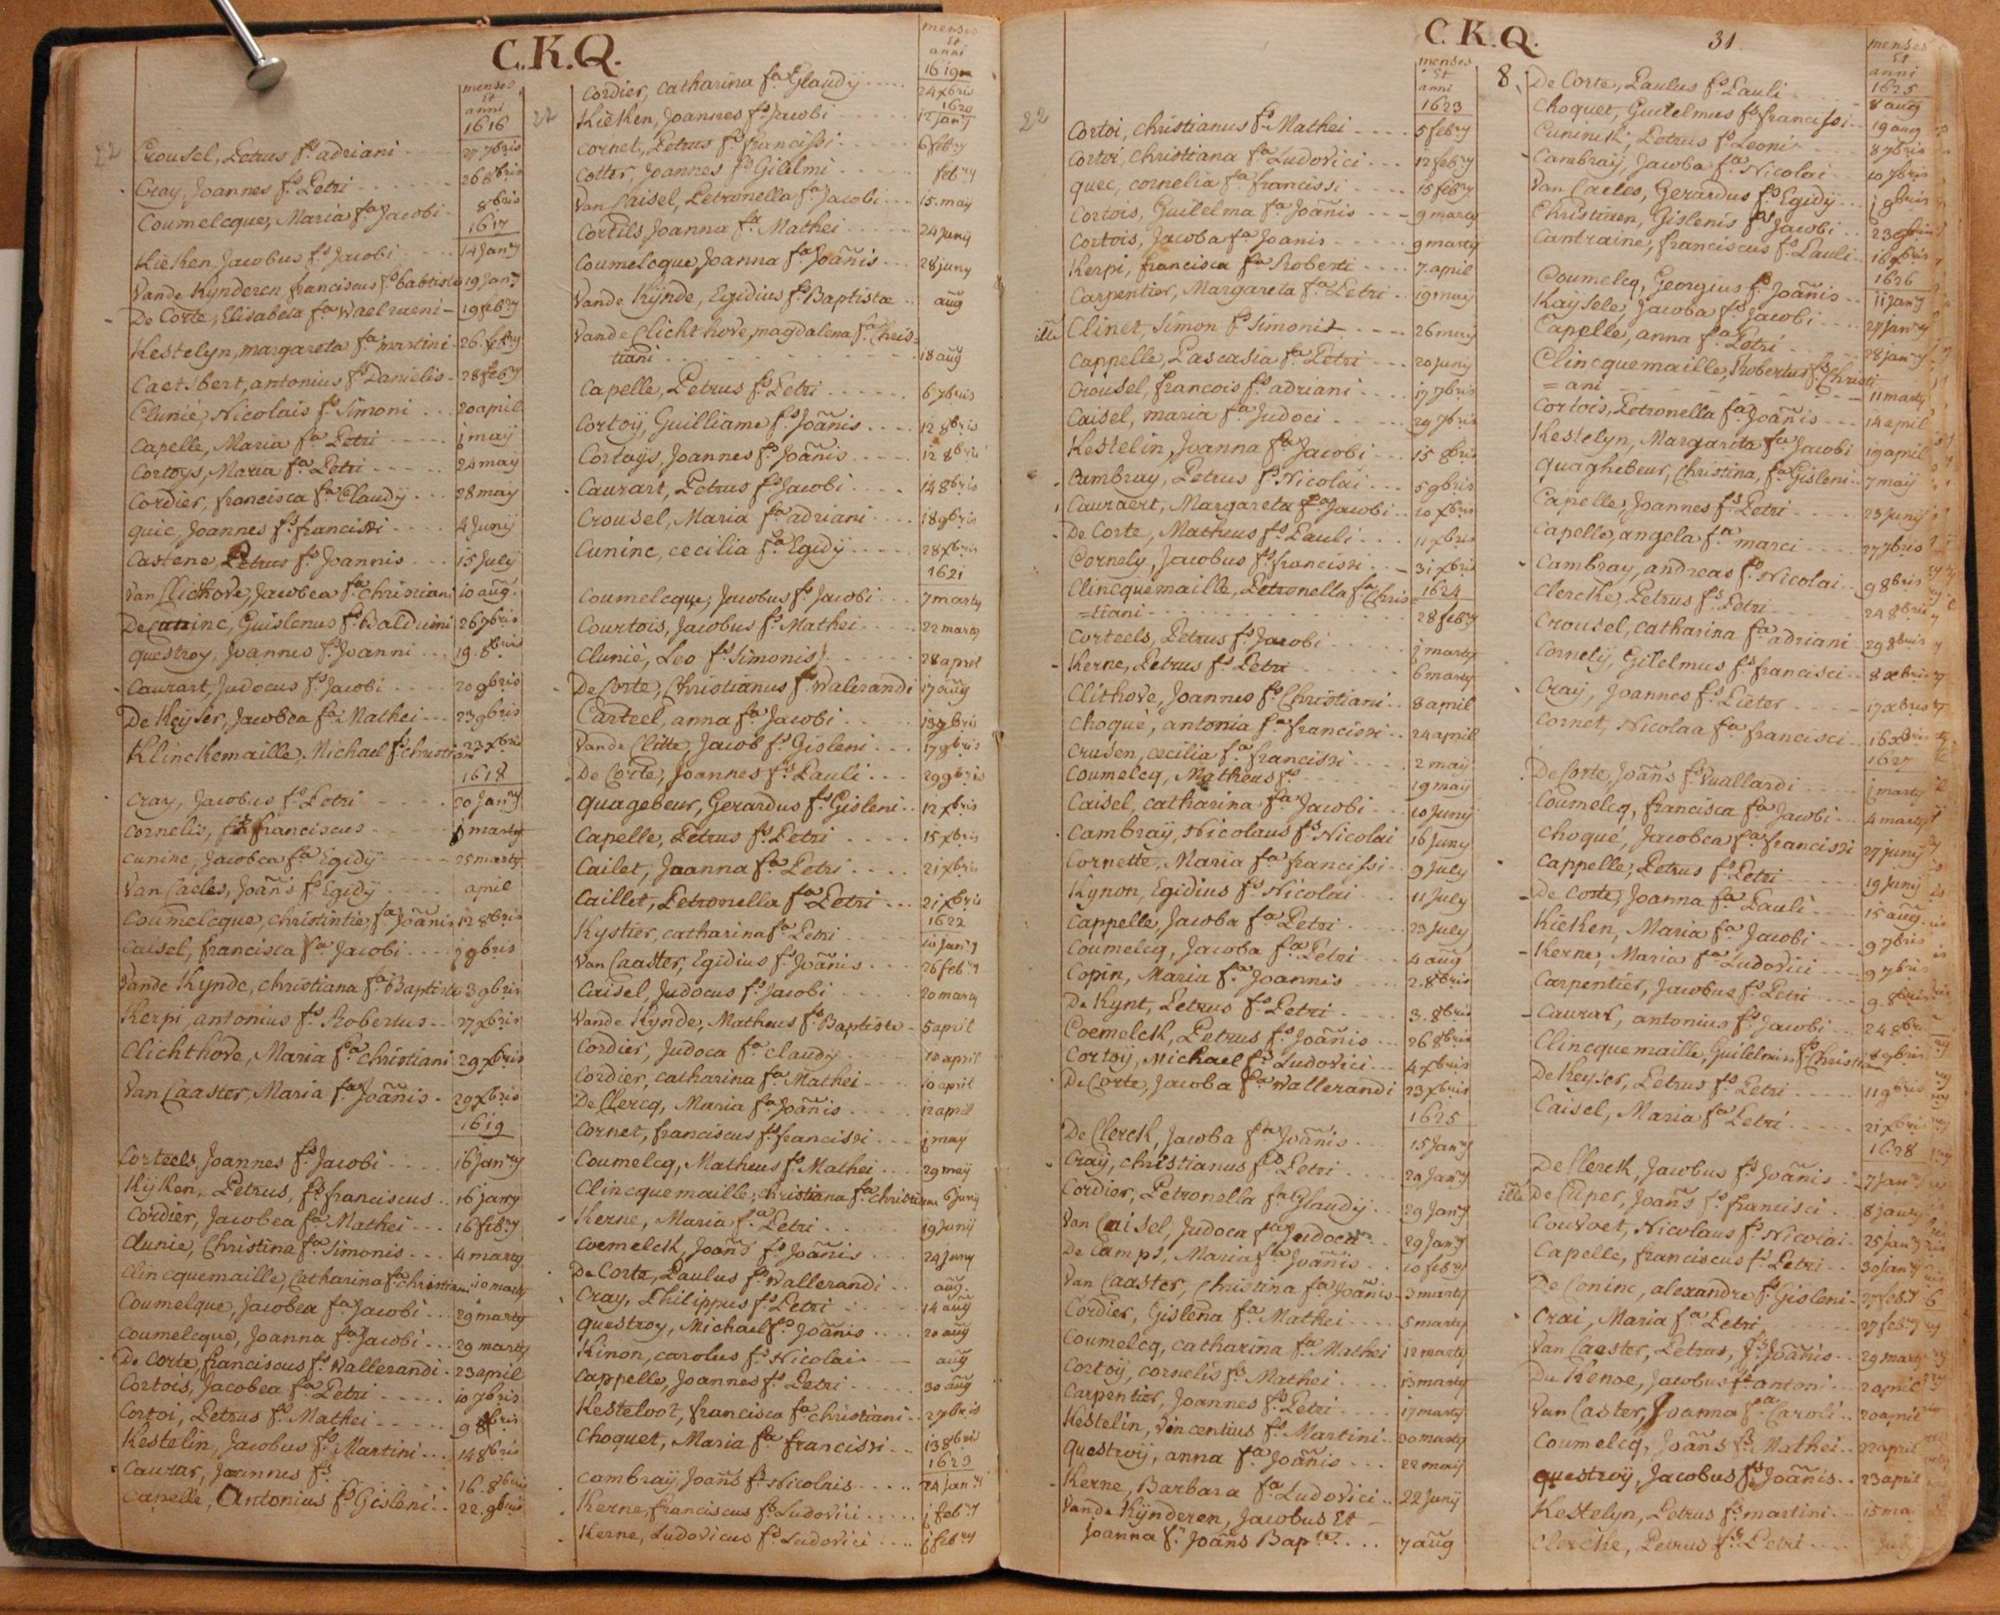 C.K.Q.
menses
Et
anni
1616
22 Crousel, Petrus fs adriani 27 7bris
Cray, Joannes fs Petri 26 8bris
Coumelcque, Maria fa Jacobi 8bris
1617
Kieken, Jacobus fs Jacobi 14 Janry
Vande Kynderen, franciscus fs baptista 19 Janry
De Corte, Elisabeta fa Waelraeni 19 febry
Kestelyn, margareta fa martini 26 febry
Caetsbert, antonius fs Danielis 28 febry
Clunie, Nicolais fs Simoni 20 april
Capelle, Maria fa Petri j maÿ
Cortoys, Maria fa Petri 24 may
Cordier, francisca fa Claudÿ 28 may
quic, Joannes fs francisci 4 Junÿ
Castene, Petrus fs Joannis 15 July
Van Clichove, Jacobea fa christiani 10 aug.
De Caninc, Guislenus fs Balduini 26 7bris
questroy, Joannes fs Joanni 19 8bris
Caurart, Judocus fs Jacobi 20 9bris
De Keyser, Jacobea fa Mathei 23 9bris
Klinckemaille, Michael fs christiani 23 xbris
1618
Cray, Jacobus fs Petri 20 Janry
Cornelis, fs franciscus marty
cuninc, Jacobea fa Egidÿ 25 marty
Van Cacles, Joañis fs Egidÿ april
Coumelcque, christintie, fa Joañis 12 8bris
Caisel, francisca fa Jacobi j 9bris
Vande Kynde, christiana fa Baptiste 3 9bris
Kerpi, antonius fs Robertus 27 xbris
Clichthove, Maria fa christiani 29 xbris
Van Caaster, Maria fa Joañis 29 xbris
1619
Corteels, Joannes fs Jacobi 16 Janry
Kijken, Petrus, fs franciscus 16 janry
Cordier, Jacobea fa Mathei 16 febry
clunie, Christina fa Simonis 4 marty
Clincquemaille, Catharina fa christiani 10 marty
Coumelque, Jacobea fa Jacobi 29 marty
Coumelcque, Joanna fa Jacobi 29 marty
De Corte, franciscus fs Wallerandi 23 april
Cortois, Jacobea fa Petri 10 7bris
Cortoi, Petrus fs Mathei 9 8bris
Kestelin, Jacobus fs Martini 14 8bris
Caurar, Joannes fs 16 8bris
Capelle, Antonius fs Gisleni 22 9bris
menses
Et
anni
1619
Cordier, Catharina fa Glaudÿ 24 xbris
1620
22 Kieken, Joannes fs Jacobi 12 Janry
Cornet, Petrus fs francissi 6 febry
Cotter, Joannes fs Gilelmi febry
Van Caisel, Petronella fa Jacobi 15 may
Cortils Joanna fa Mathei 24 Junÿ
Coumelcque, Joanna fa Joañis 28 juny
Vande Kÿnde, Egidius fs Baptistæ aug
Vande Clicht hove, magdalena fa Chris=
tiani 18 aug
Capelle, Petrus fs Petri 6 7bris
Cortoÿ, Guilliame fs Joañis 12 8bris
Cortoÿs, Joannes fs Joañis 12 8bris
Caurart, Petrus fs Jacobi 14 8bris
Crousel, Maria fa adriani 18 9bris
Cuninc, cecilia fa Egidÿ 28 xbris
1621
Coumelcque, Jacobus fs Jacobi 7 marty
Courtois, Jacobus fs Mathei 22 marty
Clunié, Leo fs Simonis 28 april
De Corte, Christianus fs Walerandi 17 aug
Carteel, anna fa Jacobi 13 9bris
Vande Clitte, Jacob fs Gisleni 17 9bris
De Corte, Joannes fs Pauli 29 9bris
quagebeur, Gerardus fs Gisleni 12 xbris
Capelle, Petrus fs Petri 15 xbris
Cailet, Joanna fa Petri 21 xbris
Caillet, Petronella fa Petri 21 xbris
1622
Kystier, catharina fa Petri 10 Janry
Van Caaster, Egidius fs Joañis 26 febry
Caisel, Judocus fs Jacobi 20 marty
Vande Kÿnde, Matheus fs Baptiste 5 april
Cordier, Judoca fa claudy 10 april
Cordier, catharina fa Mathei 10 april
De Clercq, Maria fa Joañis 12 april
Cornet, franciscus fs francissi j may
Coumelcq, Matheus fs Mathei 29 may
Clincquemaille, christiana fa christiani 6 Junÿ
Kerne, Maria fa Petri 19 Junÿ
Coemelck, Joañs fs Joañis 24 Juny
De Corte, Paulus fs Wallerandi aug.
Cray, Philippus fs Petri 14 aug
questroy, Michael fs Joañis 20 aug
Kinon, carolus fs Nicolai aug
Cappelle, Joannes fs Petri 30 aug
Kesteloot, francisca fa christiani 2 7bris
Choquet, Maria fa francissi 13 8bris
1623
cambraÿ, Joañs fs Nicolais 24 Janry
Kerne, franciscus fs Ludovici j febry
Kerne, Ludovicus fs Ludovici j febry
C.K.Q.
31
menses
Et
anni
1623
22 Cortoi, christianus fs Mathei 5 febry
Cortoi, christiana fa Ludovici 12 febry
quec, cornelia fa francissi 15 febry
Cortois, Guilelma fa Joañis 9 marty
Cortois, Jacoba fa Joanis 9 marty
Kerpi, francisca fa Roberti 7 april
Carpentier, Margareta fa Petri 19 may
ille Clinet, Simon fs Simonis 26 may
Cappelle, Pascasia fa Petri 20 Junÿ
Crousel, francois fs adriani 17 7bris
Caisel, maria fa Judoci 29 7bris
Kestelin, Joanna fa Jacobi 15 8bris
Cambray, Petrus fs Nicolai 5 9bris
Cauraert, Margareta fa Jacobi 10 xbris
De Corte, Matheus fs Pauli 11 xbris
Cornely, Jacobus fs francissi 31 xbris
1624
Clincquemaille, Petronella fa Chris
=tiani 28 febry
Corteels, Petrus fs Jacobi j marty
Kerne, Petrus fs Petri 6 marty
Clithove, Joannes fs Christiani 8 april
Choqué, antonia fa francissi 24 april
Crusen, cecilia fa francissi 2 may
Coumelcq, Matheus fs 19 may
Caisel, catharina fa Jacobi 10 Junÿ
Cambraÿ, Nicolaus fs Nicolai 16 Juny
Cornette, Maria fa francissi 9 July
Kynon, Egidius fs Nicolai 11 July
Cappelle, Jacoba fa Petri 23 July
Coumelcq, Jacoba fa Petri 4 aug
Copin, Maria fa Joannis 2 8bris
De Kynt, Petrus fs Petri 3 8bris
Coemelck, Petrus fs Joañis 26 8bris
Cortoÿ, Michael fs Ludovici 4 xbris
De Corte, Jacoba fa Wallerandi 23 xbris
1625
De Clerck, Jacoba fa Joañis 15 Janry
Craÿ, christianus fs Petri 20 Janry
Cordier, Petronella fa Glaudÿ 29 Janry
Van Caisel, Judoca fa Judoci 29 Janry
De Camps, Maria fa Joañis 10 febry
Van Caaster, Christina fa Joañis 3 marty
Cordier, Gislena fa Mathei 5 marty
Coumelcq, catharina fa Mathei 12 marty
Cortoÿ, cornelis fs Mathei 13 marty
Carpentier, Joannes fs Petri 17 marty
Kestelin, Vincentius fs Martini 30 marty
questroÿ, anna fa Joañis 22 maÿ
Kerne, Barbara fa Ludovici 22 Junÿ
Vande Kÿnderen, Jacobus Et
Joanna fs Joañs Bapte 7 aug
menses
Et
anni
1625
8 De Corte, Paulus fs Pauli 8 aug
Choquet, Guilelmus fs francissi 19 aug
Cuninck, Petrus fs Leonis 8 7bris
Cambraÿ, Jacoba fa Nicolai 10 7bris
Van Caeles, Gerardus fs Egidÿ j 9bris
Christiaen, Gislenis fs Jacobi 23 9bris
Cantraine, franciscus fs Pauli 16 xbris
1626
Coumelcq, Georgius fs Joañis 11 Janry
Kaysele, Jacoba fa Jacobi 27 janry
Capelle, anna fa Petri 28 janry
Clincquemaille, Robertus fs Christi
=ani 11 marty
Cortois, Petronella fa Joañis 14 april
Kestelyn, Margareta fa Jacobi 19 april
Quaghebeur, Christina, fa Gisleni 7 maÿ
Capelle, Joannes fs Petri 23 Junÿ
Capelle, angela fa marci 27 7bris
Cambray, andreas fs Nicolai 9 8bris
Clercke, Petrus fs Petri 24 8bris
Crousel, catharina fa adriani 29 8bris
Cornelÿ, Gilelmus fs francisci 8 xbris
Craÿ, Joannes fs Pieter 17 xbris
Cornet, Nicolaa fa francisci 16 xbris
1627
De Corte, Joañs fs Wallardi j marty
Coumelcq, francisca fa Jacobi 4 marty
Choqué, Jacobea fa francissi 27 junÿ
Cappelle, Petrus fs Petri 19 Junÿ
De Corte, Joanna fa Pauli 15 aug
Kieken, Maria fa Jacobi 9 7bris
Kerne, Maria fa Ludovici 9 7bris
Carpentier, Jacobus fs Petri 9 8bris
Caurar, antonius fs Jacobi 24 8bris
Clincquemaille, Guilelmus fs Christi 8 9bris
De Keyser, Petrus fs Petri 11 9bris
Caisel, Maria fa Petri 21 xbris
1628
De Clerck, Jacobus fs Joañis 7 Janry
ille De Cuper, Joañs fs francisci 8 janry
Couvoet, Nicolaus fs Nicolai 25 janry
Capelle, franciscus fs Petri 30 Janry
De Coninc, alexandre fs Gisleni 27 febry
Crai, Maria fa Petri 27 febry
Van Caester, Petrus, fs Joañis 29 marty
Du Kenoe, Jacobus fs antoni 2 april
Van Caster, Joanna fa Caroli 20 april
Coumelcq, Joañs fs Mathei 22 april
questroÿ, Jacobus fs Joañis 23 april
Kestelyn, Petrus fs martini 15 ma
Clercke, Petrus fs Petri